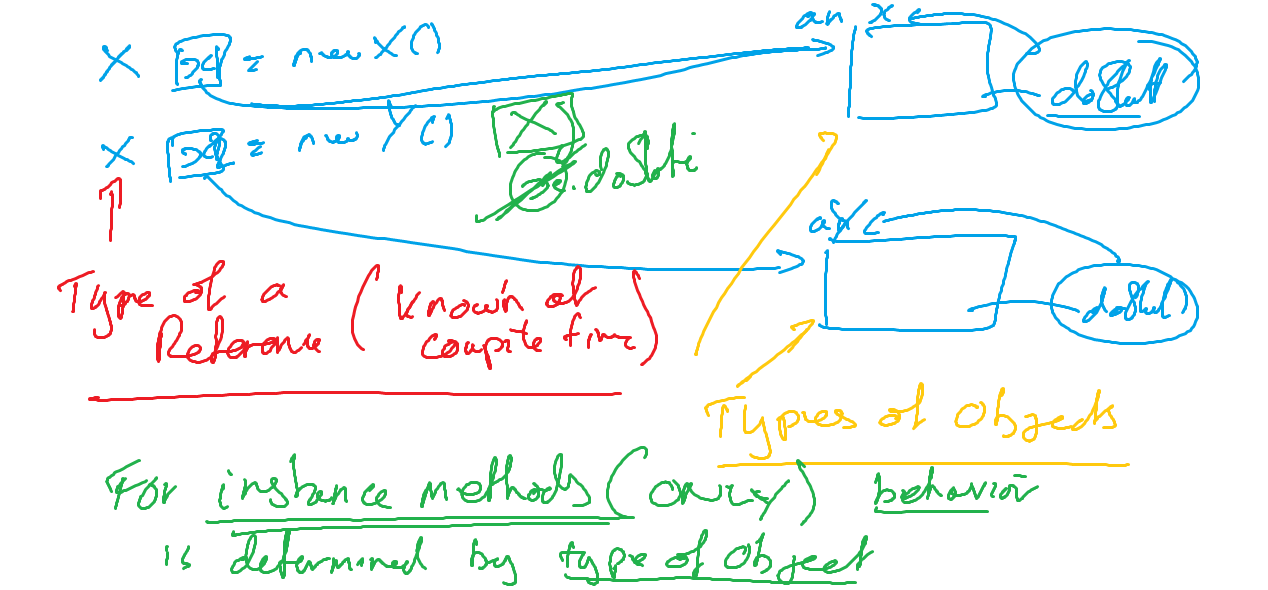 an x
X x1 = new X()
doStuff
X x2 = new Y() X
.doStati
a Y
doStuff
Type of a
Reference (known at
compile time)
Types of Objects
For instance methods (ONLY) behavior
is determined by type of Object